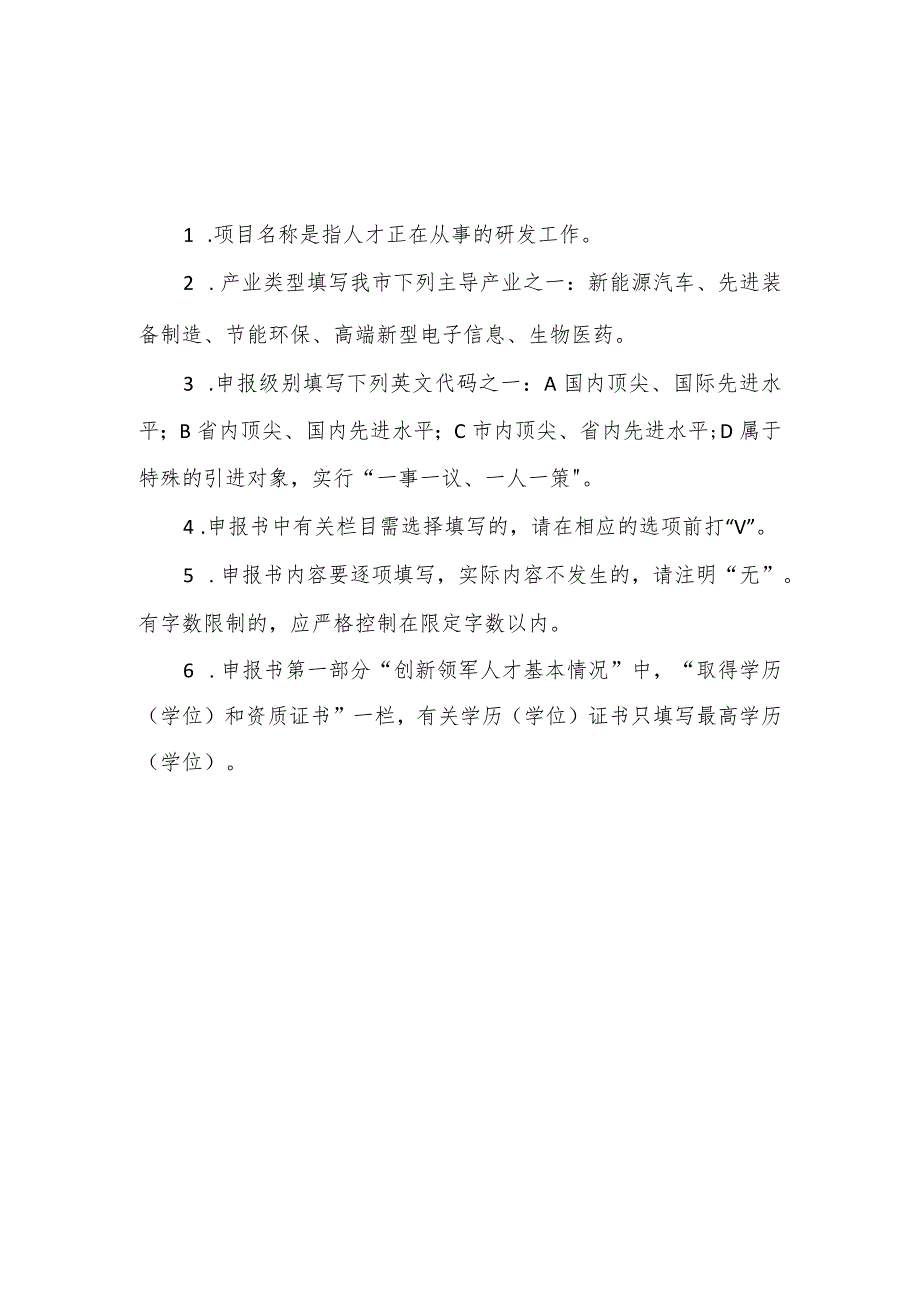 1 .项目名称是指人才正在从事的研发工作。
2 . 产业类型填写我市下列主导产业之一：新能源汽车、先进装
备制造、节能环保、高端新型电子信息、生物医药。
3 .申报级别填写下列英文代码之一：A 国内顶尖、国际先进水
平；B 省内顶尖、国内先进水平；C 市内顶尖、省内先进水平;D 属于
特殊的引进对象，实行“一事一议、一人一策"。
4 .申报书中有关栏目需选择填写的，请在相应的选项前打“V”。
5 . 申报书内容要逐项填写，实际内容不发生的，请注明“无”。
有字数限制的，应严格控制在限定字数以内。
6 . 申报书第一部分“创新领军人才基本情况”中，“取得学历
（学位）和资质证书”一栏，有关学历（学位）证书只填写最高学历
（学位）。